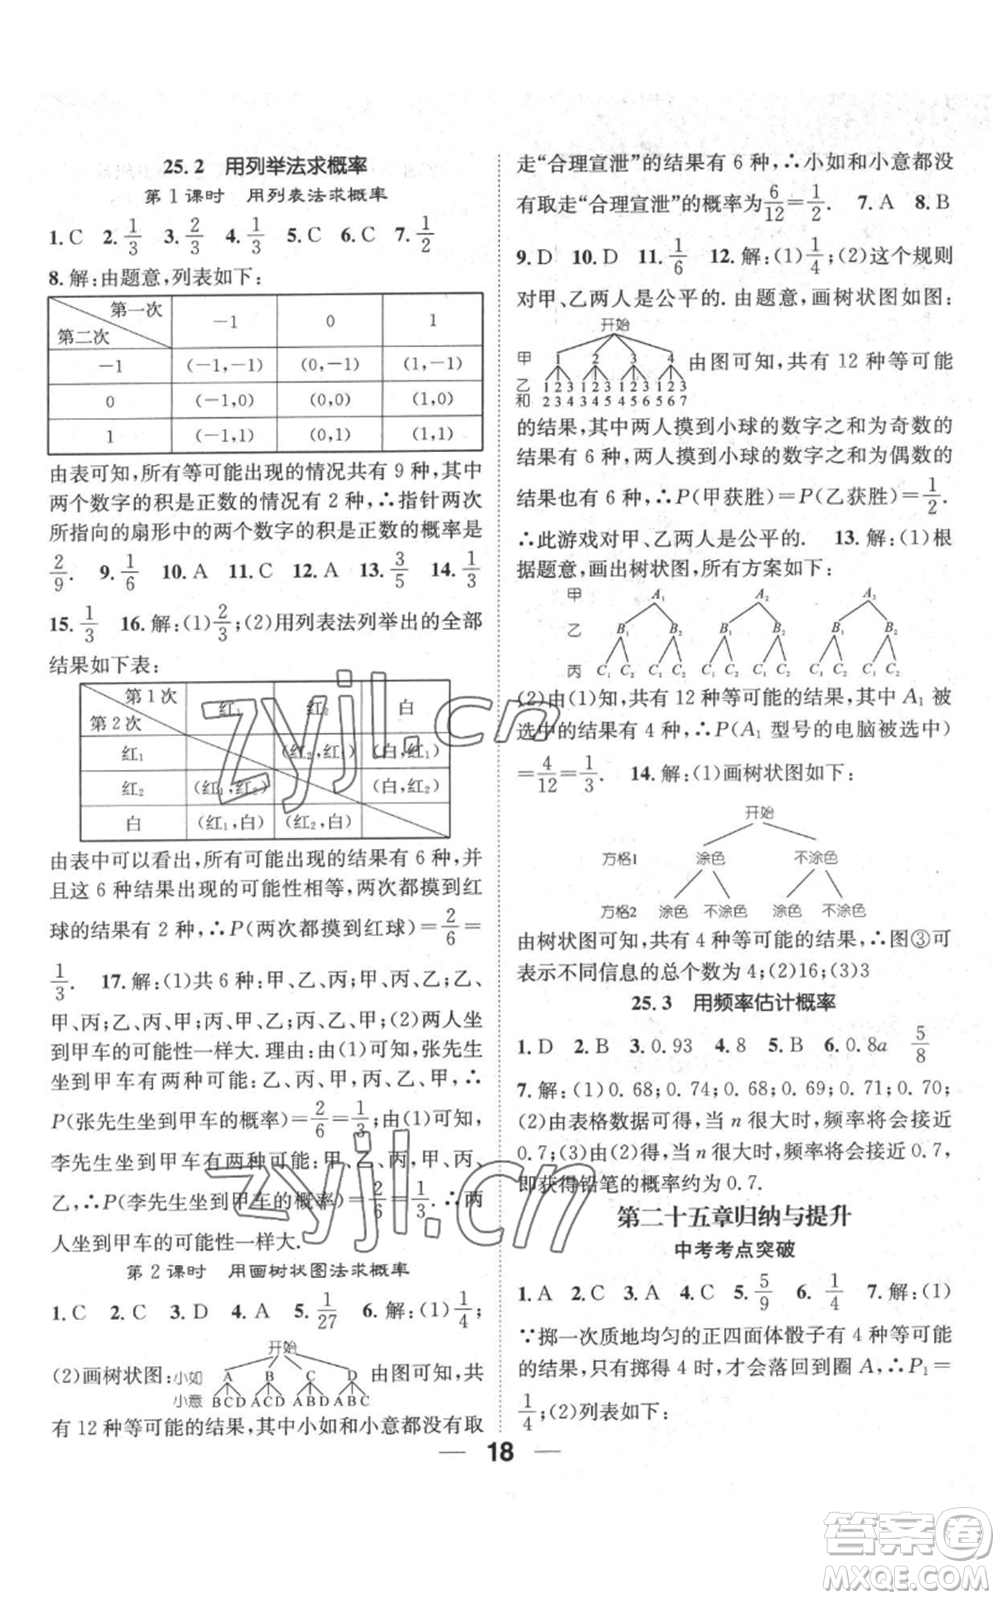 25.2 用列举法求概率
第1课时 用列表法求概率
1.C 2.1/3 3.2/3 4.1/3 5.C 6.C 7.1/2
8.解:由题意,列表如下:
第一次 -1 0 1
第二次
-1 (-1,-1) (0,-1) (1,-1)
0 (-1,0) (0,0) (1,0)
1 (-1,1) (0,1) (1,1)
由表可知,所有等可能出现的情况共有 9 种,其中
两个数字的积是正数的情况有 2 种,∴指针两次
所指向的扇形中的两个数字的积是正数的概率是
2/9. 9.1/6 10.A 11.C 12.A 13.3/5 14.1/3
15.1/3 16.解:(1)2/3;(2)用列表法列举出的全部
结果如下表:
第1次 红₁ 红₂ 白
第2次
红₁ (红₂,红₁) (白,红₁)
红₂ (红₁,红₂) (白,红₂)
白 (红₁,白) (红₂,白)
由表中可以看出,所有可能出现的结果有 6 种,并
且这 6 种结果出现的可能性相等,两次都摸到红
球的结果有 2 种,∴P(两次都摸到红球)=2/6=
1/3. 17.解:(1)共 6 种:甲、乙、丙;甲、丙、乙;乙、
甲、丙;乙、丙、甲;丙、甲、乙;丙、乙、甲;(2)两人坐
到甲车的可能性一样大.理由:由(1)可知,张先生
坐到甲车有两种可能:乙、丙、甲;丙、乙、甲,∴
P(张先生坐到甲车的概率)=2/6=1/3;由(1)可知,
李先生坐到甲车有两种可能:甲、乙、丙;甲、丙、
乙,∴P(李先生坐到甲车的概率)=2/6=1/3,∴两
人坐到甲车的可能性一样大.
第2课时 用画树状图法求概率
1.C 2.C 3.D 4.A 5.1/27 6.解:(1)1/4;
开始
(2)画树状图:小如 A B C D 由图可知,共
小意 BCD ACD ABD ABC
有 12 种等可能的结果,其中小如和小意都没有取
走“合理宣泄”的结果有 6 种,∴小如和小意都没
有取走“合理宣泄”的概率为6/12=1/2. 7.A 8.B
9.D 10.D 11.1/6 12.解:(1)1/4;(2)这个规则
对甲、乙两人是公平的.由题意,画树状图如图:
开始
甲 1 2 3 4 由图可知,共有 12 种等可能
乙 123 123 123 123
和 234 345 456 567
的结果,其中两人摸到小球的数字之和为奇数的
结果有 6 种,两人摸到小球的数字之和为偶数的
结果也有 6 种,∴P(甲获胜)=P(乙获胜)=1/2.
∴此游戏对甲、乙两人是公平的. 13.解:(1)根
据题意,画出树状图,所有方案如下:
甲 A₁ A₂ A₃
乙 B₁ B₂ B₁ B₂ B₁ B₂
丙 C₁ C₂ C₁ C₂ C₁ C₂ C₁ C₂ C₁ C₂ C₁ C₂
(2)由(1)知,共有 12 种等可能的结果,其中 A₁ 被
选中的结果有 4 种,∴P(A₁ 型号的电脑被选中)
=4/12=1/3. 14.解:(1)画树状图如下:
开始
方格1 涂色 不涂色
方格2 涂色 不涂色 涂色 不涂色
由树状图可知,共有 4 种等可能的结果,∴图③可
表示不同信息的总个数为 4;(2)16;(3)3
25.3 用频率估计概率
1.D 2.B 3.0.93 4.8 5.B 6.0.8a 5/8
7.解:(1)0.68;0.74;0.68;0.69;0.71;0.70;
(2)由表格数据可得,当 n 很大时,频率将会接近
0.7;(3)由(2)得,当 n 很大时,频率将会接近 0.7,
即获得铅笔的概率约为 0.7.
第二十五章归纳与提升
中考考点突破
1.A 2.C 3.A 4.C 5.5/9 6.1/4 7.解:(1)
∵掷一次质地均匀的正四面体骰子有 4 种等可能
的结果,只有掷得 4 时,才会落回到圈 A,∴P₁=
1/4;(2)列表如下:
18
zyjl.cn
zyjl.cn
答案圈
MXQE.COM